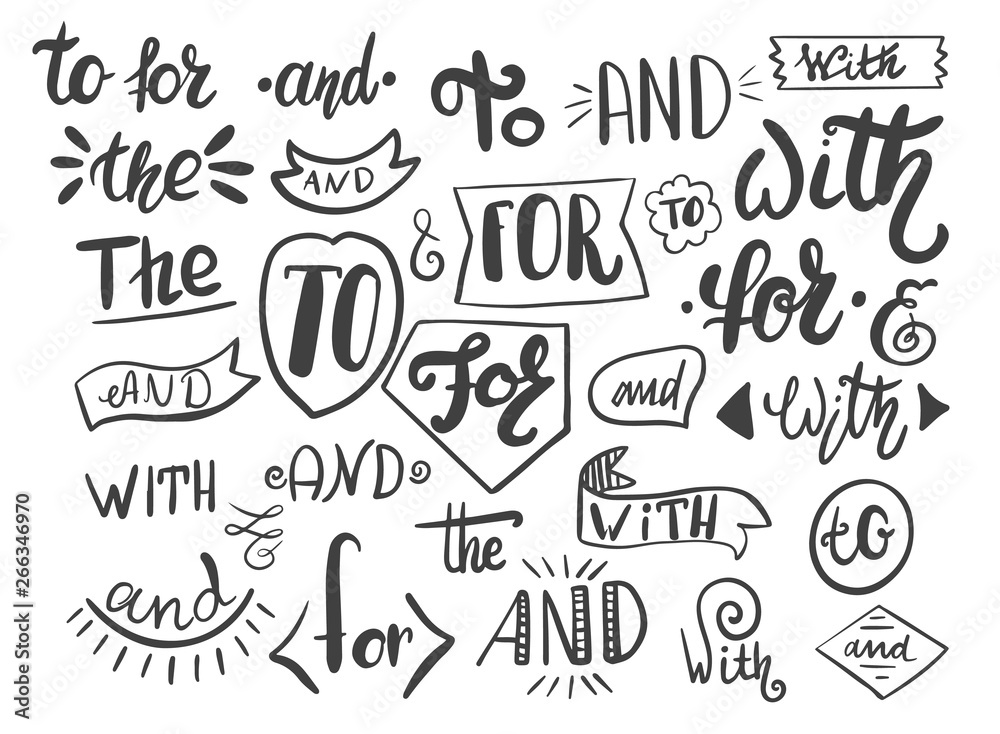 to for
·and·
To
AND
With
the
AND
FOR
TO
With
The
TO
&
·for·
&
AND
For
and
With
WITH
AND
&
the
WiTH
to
and
for
AND
With
and
Adobe Stock | #266346970